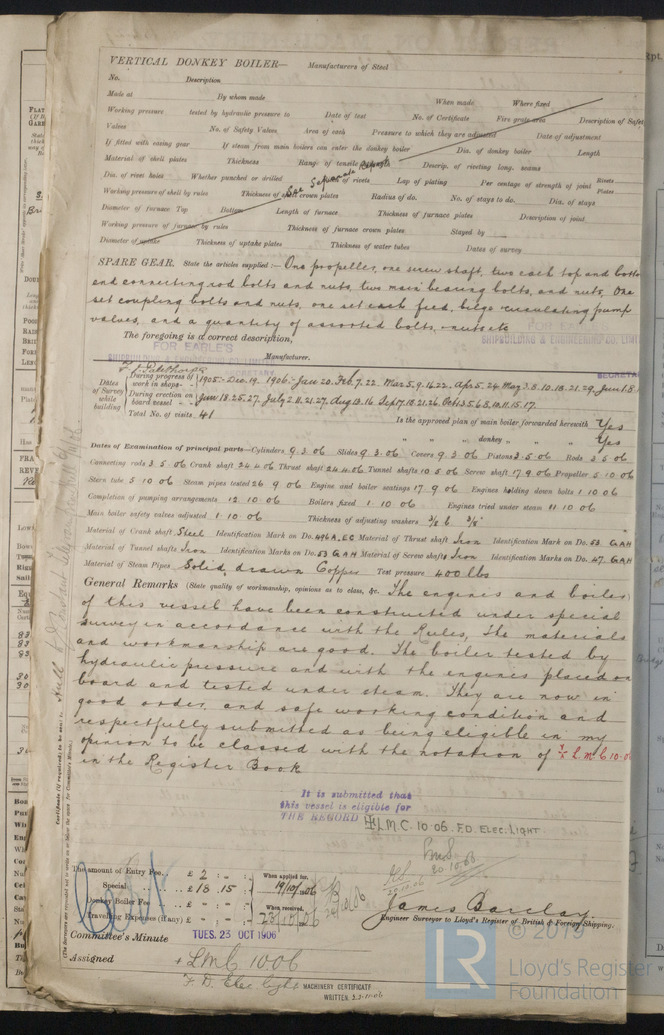 VERTICAL DONKEY BOILER— Manufacturers of Steel
No. Description
Made at By whom made When made Where fixed
Working pressure tested by hydraulic pressure to Date of test No. of Certificate Fire grate area Description of Safety
Valves No. of Safety Valves Area of each Pressure to which they are adjusted Date of adjustment
If fitted with easing gear If steam from main boilers can enter the donkey boiler Dia. of donkey boiler Length
Material of shell plates Thickness Range of tensile Descrip. of riveting long. seams
See Separate Report
Dia. of rivet holes Whether punched or drilled of rivets Lap of plating Per centage of strength of joint Rivets Plates
Working pressure of shell by rules Thickness of crown plates Radius of do. No. of stays to do. Dia. of stays
Diameter of furnace Top Bottom Length of furnace Thickness of furnace plates Description of joint
Working pressure of furnace by rules Thickness of furnace crown plates Stayed by
Diameter of uptake Thickness of uptake plates Thickness of water tubes Dates of survey
SPARE GEAR. State the articles supplied:— One propeller, one screw shaft, two each top and bottom
end connecting rod bolts and nuts, two main bearing bolts, and nuts, One
set coupling bolts and nuts, one set each feed, bilge circulating pump
valves, and a quantity of assorted bolts, nuts etc
The foregoing is a correct description,
FOR EARLE'S
SHIPBUILDING & ENGINEERING CO. LIMITED
SECRETARY
Manufacturer.
Dates of Survey while building
During progress of work in shops - 1905:- Dec. 19. 1906:- Jan 20. Feb 7. 22. Mar 5. 9. 16. 22. Apr 5. 24. May 3. 8. 10. 18. 21. 29. Jun 1. 8.
During erection on board vessel - Jun 18. 25. 27. July 2. 11. 21. 27. Aug 13. 16. Sep 17. 18. 21. 26. Oct 1. 3. 5. 6. 8. 10. 11. 15. 17.
Total No. of visits 41
Is the approved plan of main boiler forwarded herewith Yes
" " " donkey " " " Yes
Dates of Examination of principal parts—Cylinders 9.3.06 Slides 9.3.06 Covers 9.3.06 Pistons 3.5.06 Rods 3.5.06
Connecting rods 3.5.06 Crank shaft 24.4.06 Thrust shaft 24.4.06 Tunnel shafts 10.5.06 Screw shaft 17.9.06 Propeller 5.10.06
Stern tube 5.10.06 Steam pipes tested 26.9.06 Engine and boiler seatings 17.9.06 Engines holding down bolts 1.10.06
Completion of pumping arrangements 12.10.06 Boilers fixed 1.10.06 Engines tried under steam 11.10.06
Main boiler safety valves adjusted 1.10.06 Thickness of adjusting washers
Material of Crank shaft Steel Identification Mark on Do. 446A.EC Material of Thrust shaft Iron Identification Mark on Do. 53. GAH
Material of Tunnel shafts Iron Identification Marks on Do. 53 GAH Material of Screw shafts Iron Identification Marks on Do. 47. GAH
Material of Steam Pipes Solid drawn Copper Test pressure 400 lbs
General Remarks (State quality of workmanship, opinions as to class, &c. The engines and boilers
of this vessel have been constructed under special
survey in accordance with the Rules, The materials
and workmanship are good. The boiler tested by
hydraulic pressure and with the engines placed on
board and tested under steam. They are now in
good order, and safe working condition and
respectfully submitted as being eligible in my
opinion to be classed with the notation of L.M.C. 10.06
in the Register Book
It is submitted that
this vessel is eligible for
THE RECORD L.M.C. 10.06. F.D. ELEC. LIGHT
20.10.06
The amount of Entry Fee.. £ 2 : - : When applied for,
Special .. £ 18 . 15 : 19/10/06
Donkey Boiler Fee £ When received,
Travelling Expenses (if any) £ 23/10/06
James Barclay
Engineer Surveyor to Lloyd's Register of British & Foreign Shipping.
Committee's Minute TUES. 23 OCT 1906
Assigned + LMC 10.06
F.D. Elec. light
MACHINERY CERTIFICATE
WRITTEN.
© 2019
LR
Lloyd's Register
Foundation